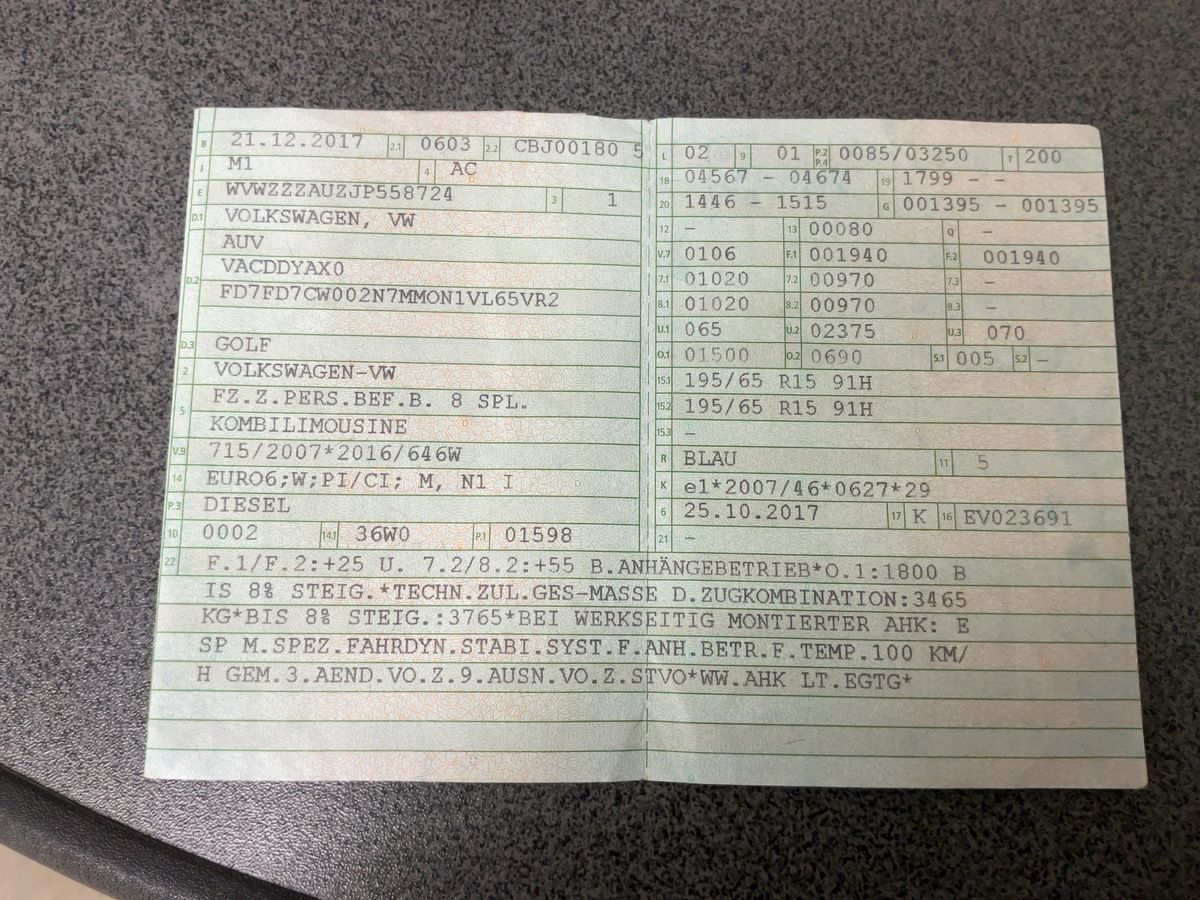 B 21.12.2017 2.1 0603 2.2 CBJ00180 5
J M1 4 AC
E WVWZZZAUZJP558724 3 1
D.1 VOLKSWAGEN, VW
AUV
D.2 VACDDYAX0
FD7FD7CW002N7MMON1VL65VR2
D.3 GOLF
2 VOLKSWAGEN-VW
5 FZ.Z.PERS.BEF.B. 8 SPL.
KOMBILIMOUSINE
V.9 715/2007*2016/646W
14 EURO6;W;PI/CI; M, N1 I
P.3 DIESEL
10 0002 14.1 36W0 P.1 01598
L 02 9 01 P.2 P.4 0085/03250 T 200
18 04567 - 04674 19 1799 - -
20 1446 - 1515 G 001395 - 001395
12 - 13 00080 Q -
V.7 0106 F.1 001940 F.2 001940
7.1 01020 7.2 00970 7.3 -
8.1 01020 8.2 00970 8.3 -
U.1 065 U.2 02375 U.3 070
O.1 01500 O.2 0690 S.1 005 S.2 -
15.1 195/65 R15 91H
15.2 195/65 R15 91H
15.3 -
R BLAU 11 5
K e1*2007/46*0627*29
6 25.10.2017 17 K 16 EV023691
21 -
22 F.1/F.2:+25 U. 7.2/8.2:+55 B.ANHÄNGEBETRIEB*O.1:1800 B
IS 8% STEIG.*TECHN.ZUL.GES-MASSE D.ZUGKOMBINATION:3465
KG*BIS 8% STEIG.:3765*BEI WERKSEITIG MONTIERTER AHK: E
SP M.SPEZ.FAHRDYN.STABI.SYST.F.ANH.BETR.F.TEMP.100 KM/
H GEM.3.AEND.VO.Z.9.AUSN.VO.Z.STVO*WW.AHK LT.EGTG*